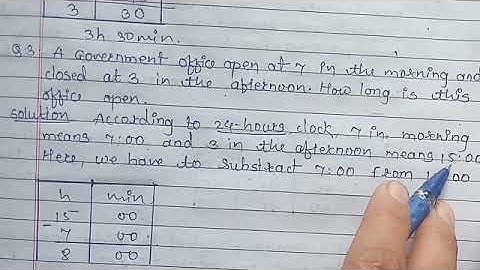 3 30
3h 30min.
Q3. A Government office open at 7 in the morning and
closed at 3 in the afternoon. How long is this
office open.
Solution According to 24-hours clock, 7 in morning
means 7:00 and 3 in the afternoon means 15:00
Here, we have to substract 7:00 from 00
h min
15 00
- 7 00
8 00